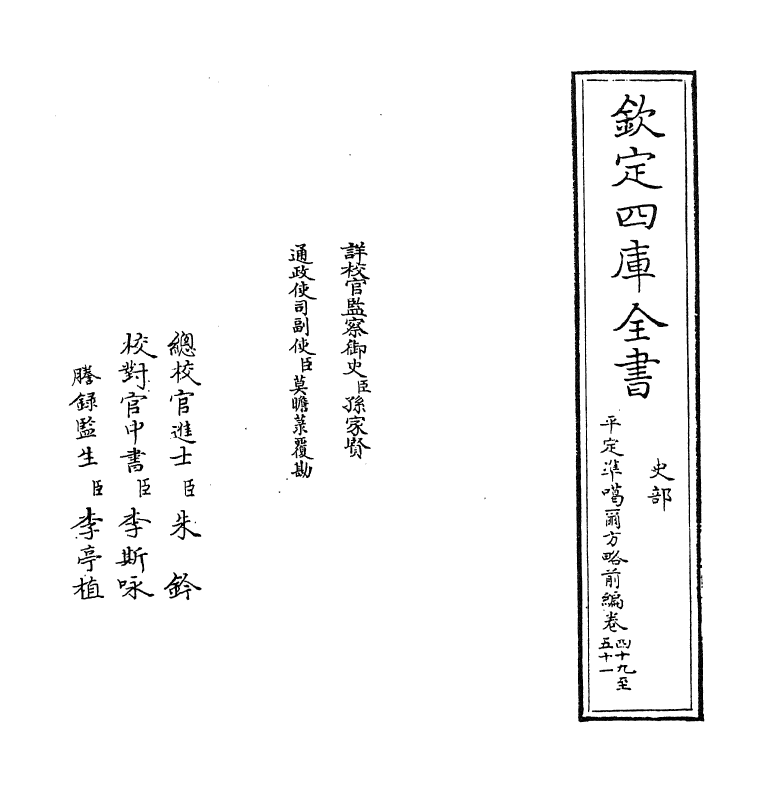 欽定四庫全書
史部
平定準噶爾方略前編卷四十九至五十一
詳校官監察御史臣孫家賢
通政使司副使臣莫瞻菉覆勘
總校官進士臣朱鈐
校對官中書臣李斯咏
謄錄監生臣李亭植